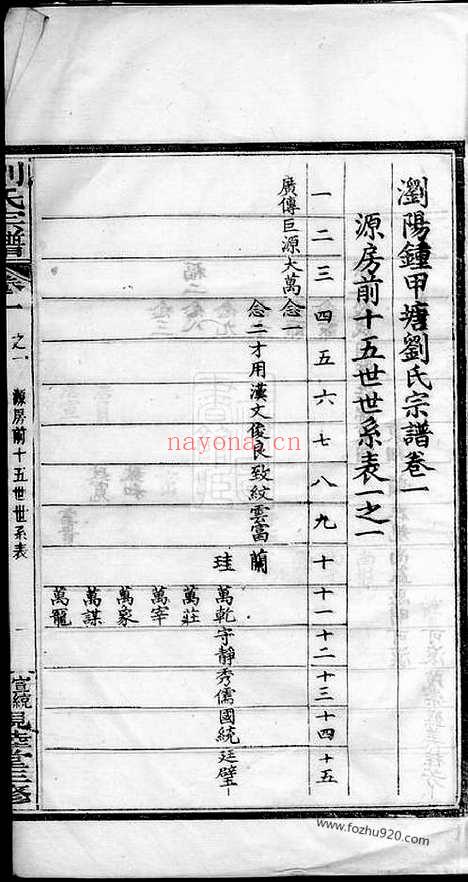 瀏陽鍾甲塘劉氏宗譜卷一
源房前十五世世系表一之一
一 二 三 四 五 六 七 八 九 十 十一 十二 十三 十四 十五
廣傳 巨源 大萬 念一
念二 才用 漢文 俊良 致紋 雲富 蘭
珪 萬乾 守靜 秀儒 國統 廷璧
萬莊
萬宰
萬象
萬謀
萬寵
劉氏宗譜 卷一 之一 源房前十五世世系表 宣統 三修
nayona.cn
www.fozhu920.com